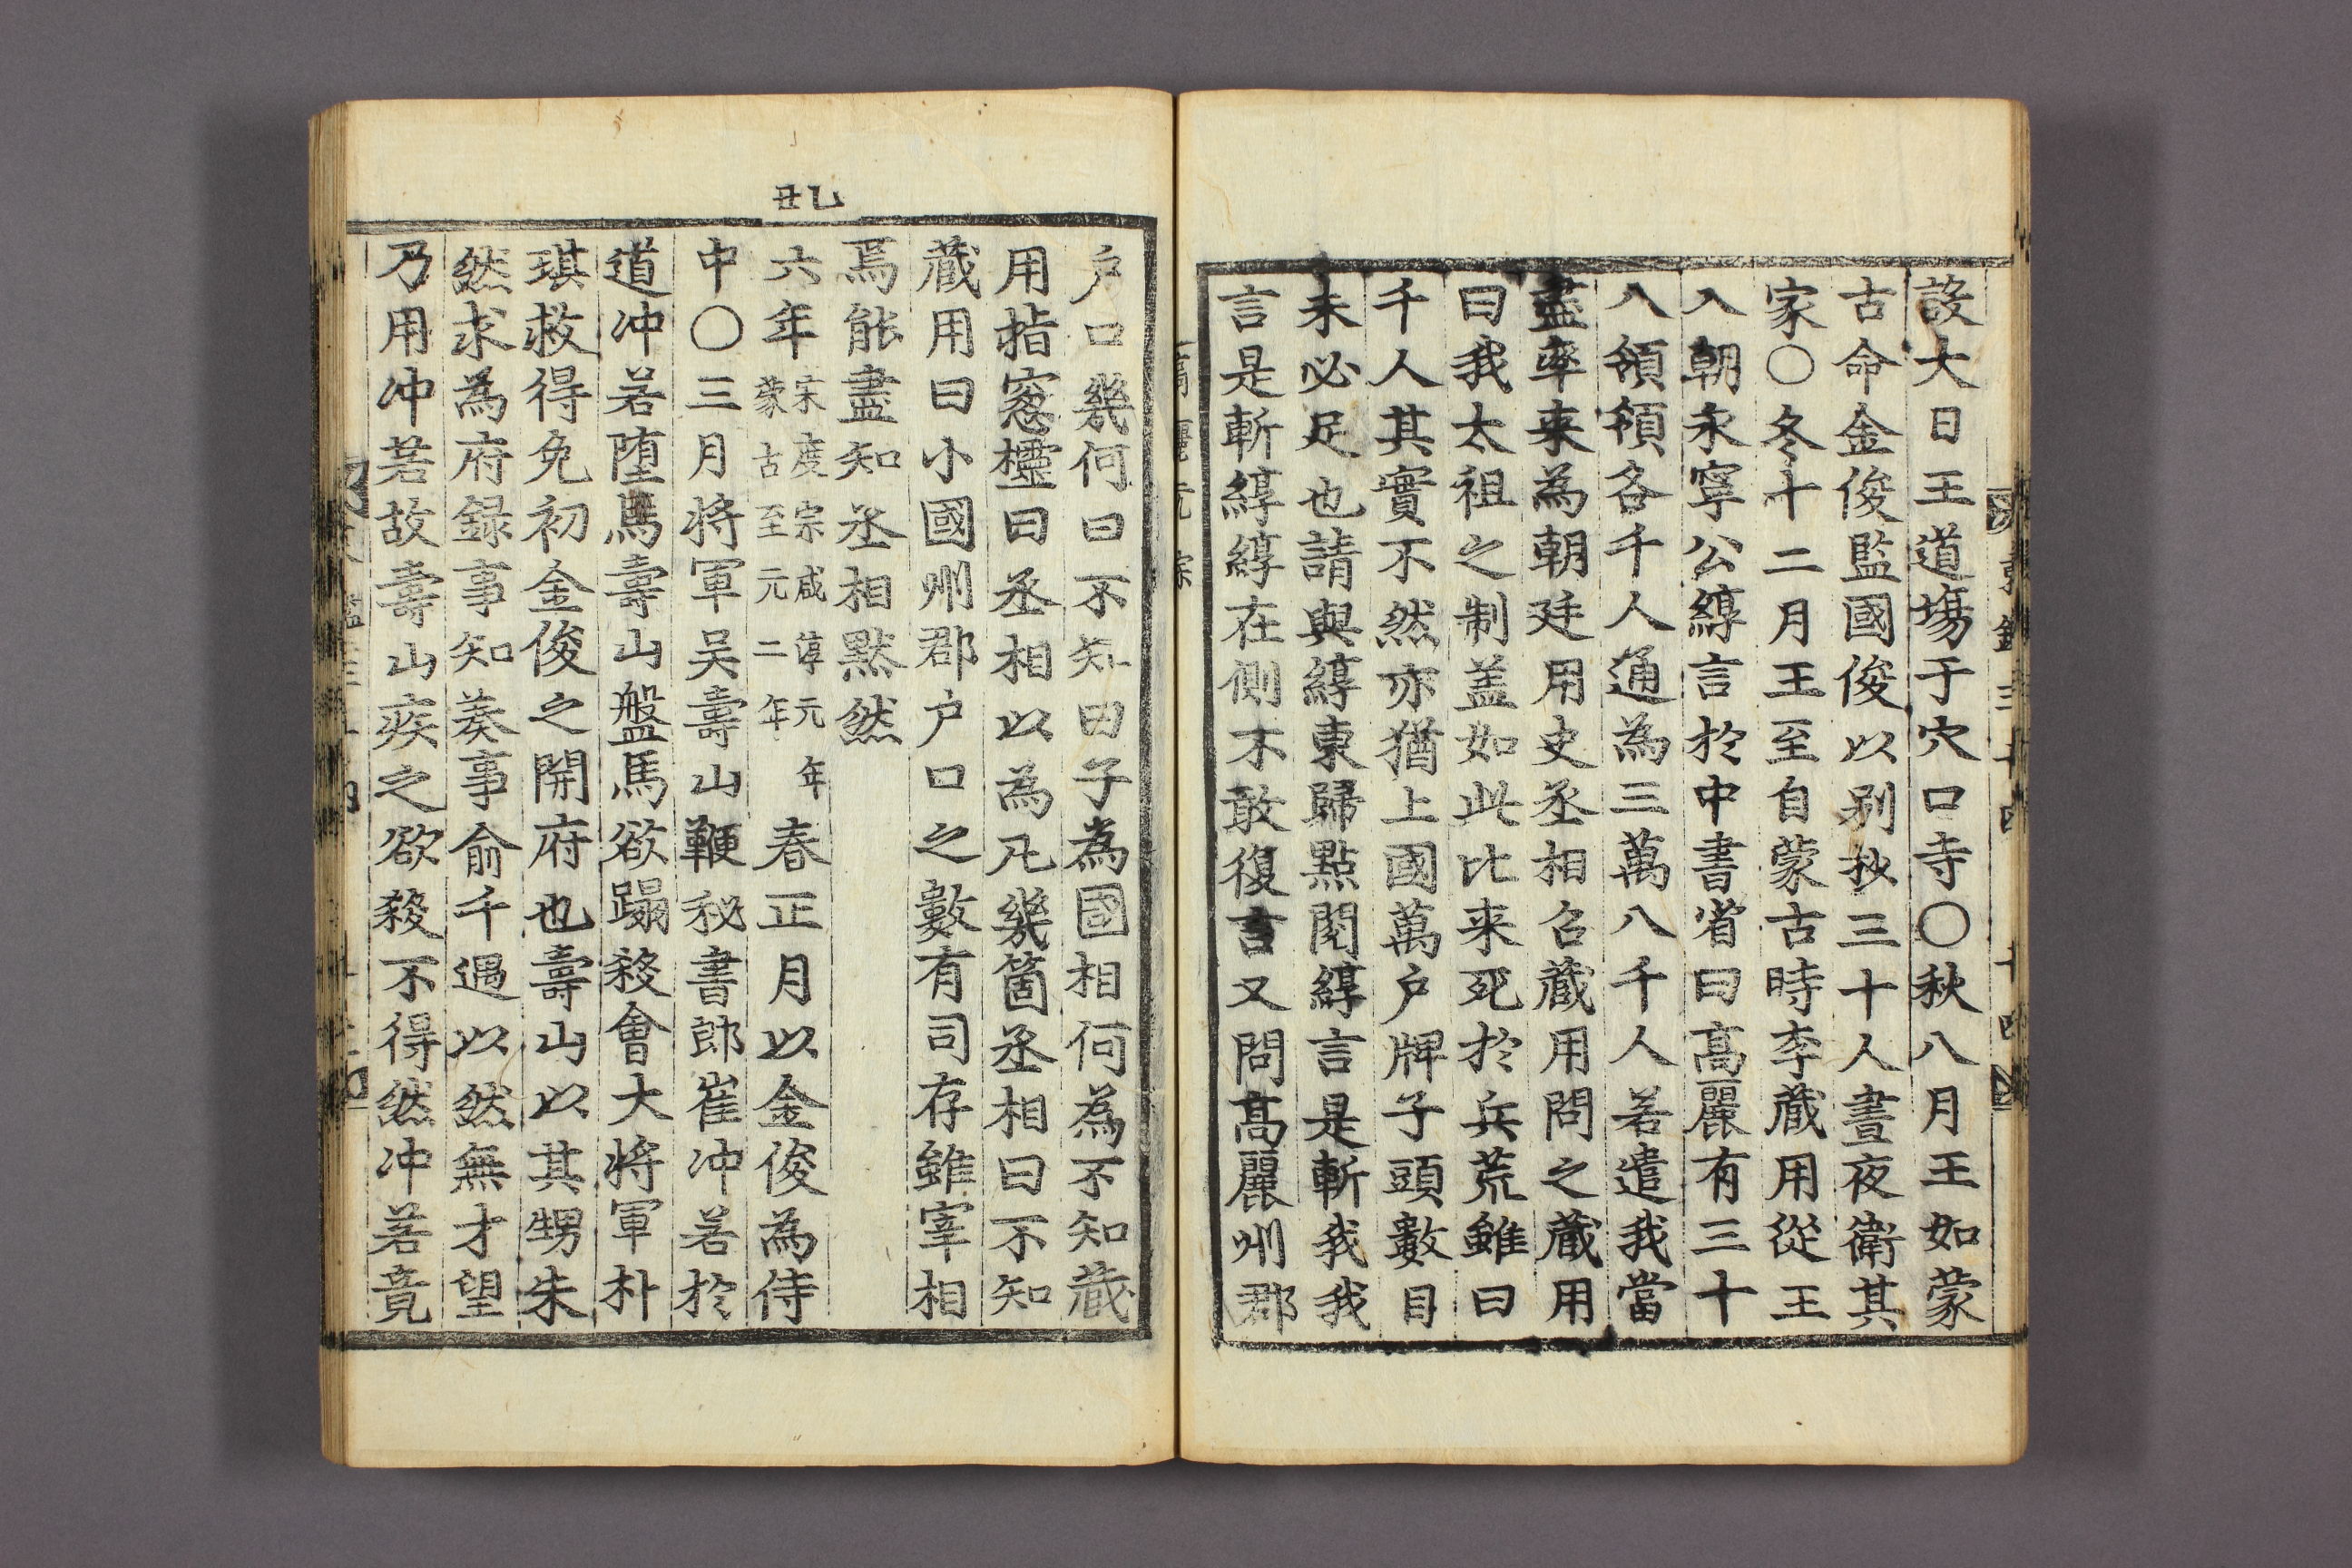 設大日王道場于穴口寺○秋八月王如蒙
古命金俊監國俊以别抄三十人晝夜衛其
家○冬十二月王至自蒙古時李蔵用從王
入朝永寧公綧言於中書省曰髙麗有三十
八領領各千人通為三萬八千人若遣我當
盡率来為朝廷用史丞相召蔵用問之蔵用
曰我太祖之制盖如此比来死於兵荒雖曰
千人其實不然亦猶上國萬户牌子頭數目
未必足也請與綧東歸點閱綧言是斬我我
言是斬綧綧在側不敢復言又問髙麗州郡
户口幾何曰不知曰子為國相何為不知蔵
用指窓櫺曰丞相以為凡幾箇丞相曰不知
蔵用曰小國州郡户口之數有司存雖宰相
焉能盡知丞相黙然
乙丑
六年宋度宗咸淳元年蒙古至元二年春正月以金俊為侍
中○三月将軍吴壽山鞭秘書郎崔冲若於
道冲若墮馬壽山盤馬欲蹋殺會大将軍朴
琪救得免初金俊之開府也壽山以其甥朱
然求為府録事知奏事俞千遇以然無才望
乃用冲若故壽山疾之欲殺不得然冲若竟